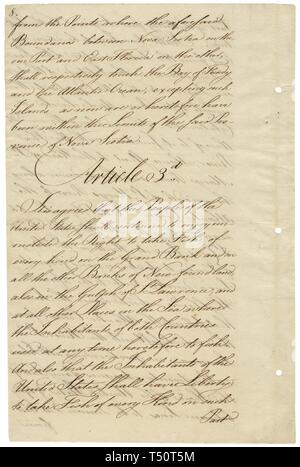 8.
from the Points where the aforesaid
Boundaries between Nova Scotia on the
one Part and East Florida on the other,
shall respectively touch the Bay of Fundy
and the Atlantic Ocean, excepting such
Islands as now are or heretofore have
been within the Limits of the said Pro
vince of Nova Scotia.
Article 3.d
It is agreed that the People of the
United States shall continue to enjoy un
molested the Right to take Fish of
every kind on the Grand Bank and on
all the other Banks of New foundland,
also in the Gulph of St Lawrence, and
at all other Places in the Sea where
the Inhabitants of both Countries
used at any time heretofore to fish.
And also that the Inhabitants of the
United States shall have Liberty
to take Fish of every Kind on such
Part
alamy
alamy
Image ID: T50T5M
www.alamy.com